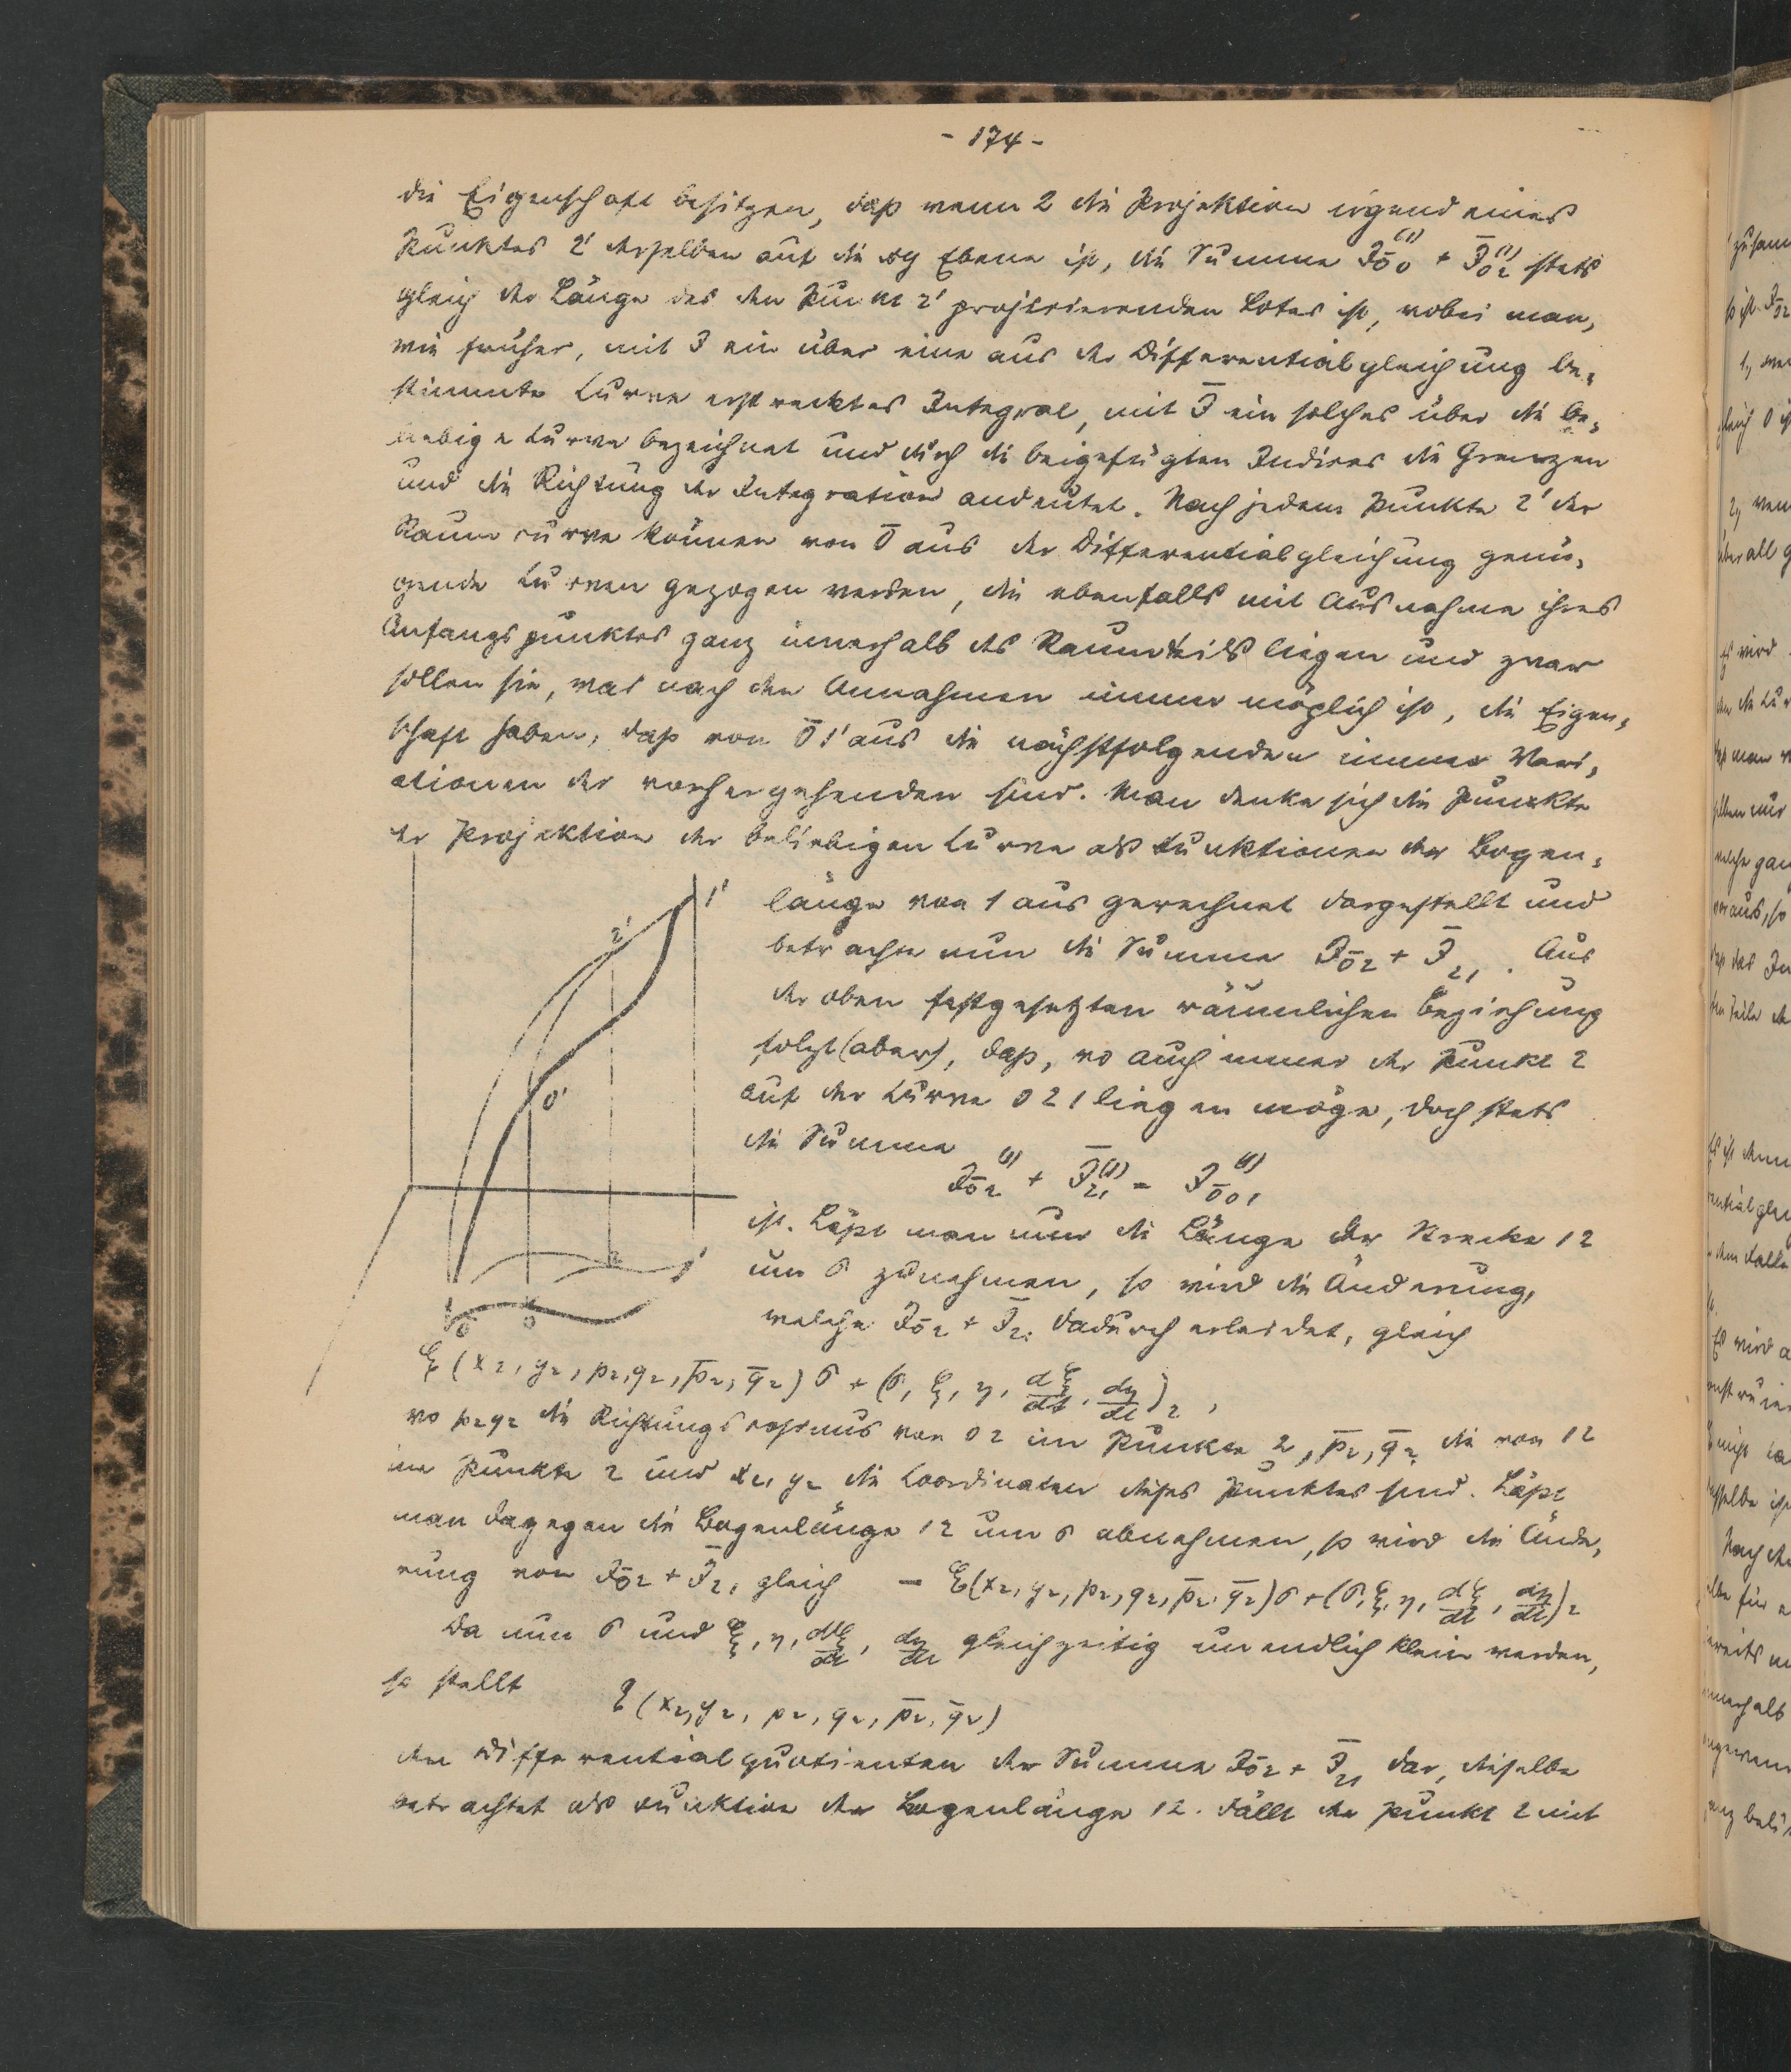 - 174 -
die Eigenschaft besitzen, daß wenn 2 die Projektion irgend eines
Punktes 2' derselben auf die xy Ebene ist, die Summe J_{0̄0}^{(1)} + J̄_{02}^{(1)} stets
gleich der Länge des den Punkt 2' projicierenden Lotes ist, wobei man,
wie früher, mit J ein über eine aus der Differentialgleichung be-
stimmte Curve erstrecktes Integral, mit J̄ ein solches über die be-
liebige Curve bezeichnet und durch die beigefügten Indices die Grenzen
und die Richtung der Integration andeutet. Nach jedem Punkte 2' der
Raumcurve können von 0̄ aus der Differentialgleichung genü-
gende Curven gezogen werden, die ebenfalls mit Ausnahme ihres
Anfangspunktes ganz innerhalb des Raumteils liegen und zwar
sollen sie, was nach den Annahmen immer möglich ist, die Eigen-
schaft haben, daß von 0̄1' aus die nächstfolgenden immer Vari-
ationen der vorhergehenden sind. Man denke sich die Punkte
der Projektion der beliebigen Curve als Funktionen der Bogen-
länge von 1 aus gerechnet dargestellt und
betrachte nun die Summe J_{0̄2} + J̄_{21}. Aus
der oben festgesetzten räumlichen Beziehung
folgt (aber), daß, wo auch immer der Punkt 2
auf der Curve 0 2 1 liegen möge, doch stets
die Summe
J_{0̄2}^{(1)} + J̄_{21}^{(1)} = J_{0̄01}^{(1)}
ist. Läßt man nun die Länge der Strecke 12
um σ zunehmen, so wird die Änderung,
welche J_{0̄2} + J̄_{21} dadurch erleidet, gleich
1'
2'
0'
2
1
0̄
0
E (x₂, y₂, p₂, q₂, p̄₂, q̄₂) σ + (σ, ξ, η, dξ/dt, dη/dt)₂,
wo p₂ q₂ die Richtungscosinus von 02 im Punkte 2, p̄₂, q̄₂ die von 12
im Punkte 2 und x₂, y₂ die Coordinaten dieses Punktes sind. Läßt
man dagegen die Bogenlänge 12 um σ abnehmen, so wird die Ände-
rung von J_{0̄2} + J̄_{21} gleich - E (x₂, y₂, p₂, q₂, p̄₂, q̄₂) σ + (σ, ξ, η, dξ/dt, dη/dt)₂
Da nun σ und ξ, η, dξ/dt, dη/dt gleichzeitig unendlich klein werden,
so stellt E (x₂, y₂, p₂, q₂, p̄₂, q̄₂)
den Differentialquotienten der Summe J_{0̄2} + J̄_{21} dar, dieselbe
betrachtet als Funktion der Bogenlänge 12. Fällt der Punkt 2 mit